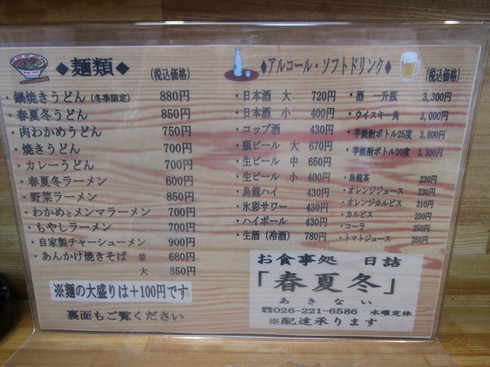 ◆麺類◆ (税込価格)
・鍋焼きうどん(冬季限定) 880円
・春夏冬うどん 850円
・肉わかめうどん 750円
・焼きうどん 700円
・カレーうどん 700円
・春夏冬ラーメン 600円
・野菜ラーメン 850円
・わかめとメンマラーメン 700円
・もやしラーメン 700円
・自家製チャーシューメン 900円
・あんかけ焼きそば 並 680円
大 850円
※麺の大盛りは+100円です
裏面もご覧ください
◆アルコール・ソフトドリンク◆ (税込価格)
・日本酒 大 720円
・日本酒 小 400円
・コップ酒 430円
・瓶ビール 大 670円
・生ビール 中 650円
・生ビール 小 400円
・烏龍ハイ 430円
・氷彩サワー 430円
・ハイボール 430円
・生酒(冷酒) 780円
・酒 一升瓶 3,300円
・ウイスキー角 3,000円
・芋焼酎ボトル25度
・芋焼酎ボトル20度 3,300円
・烏龍茶 230円
・オレンジジュース 230円
・オレンジカルピス 310円
・カルピス 230円
・コーラ 250円
・トマトジュース 250円
お食事処 日詰
「春夏冬」
あきない
☎026-221-6586 水曜定休
※配達承ります